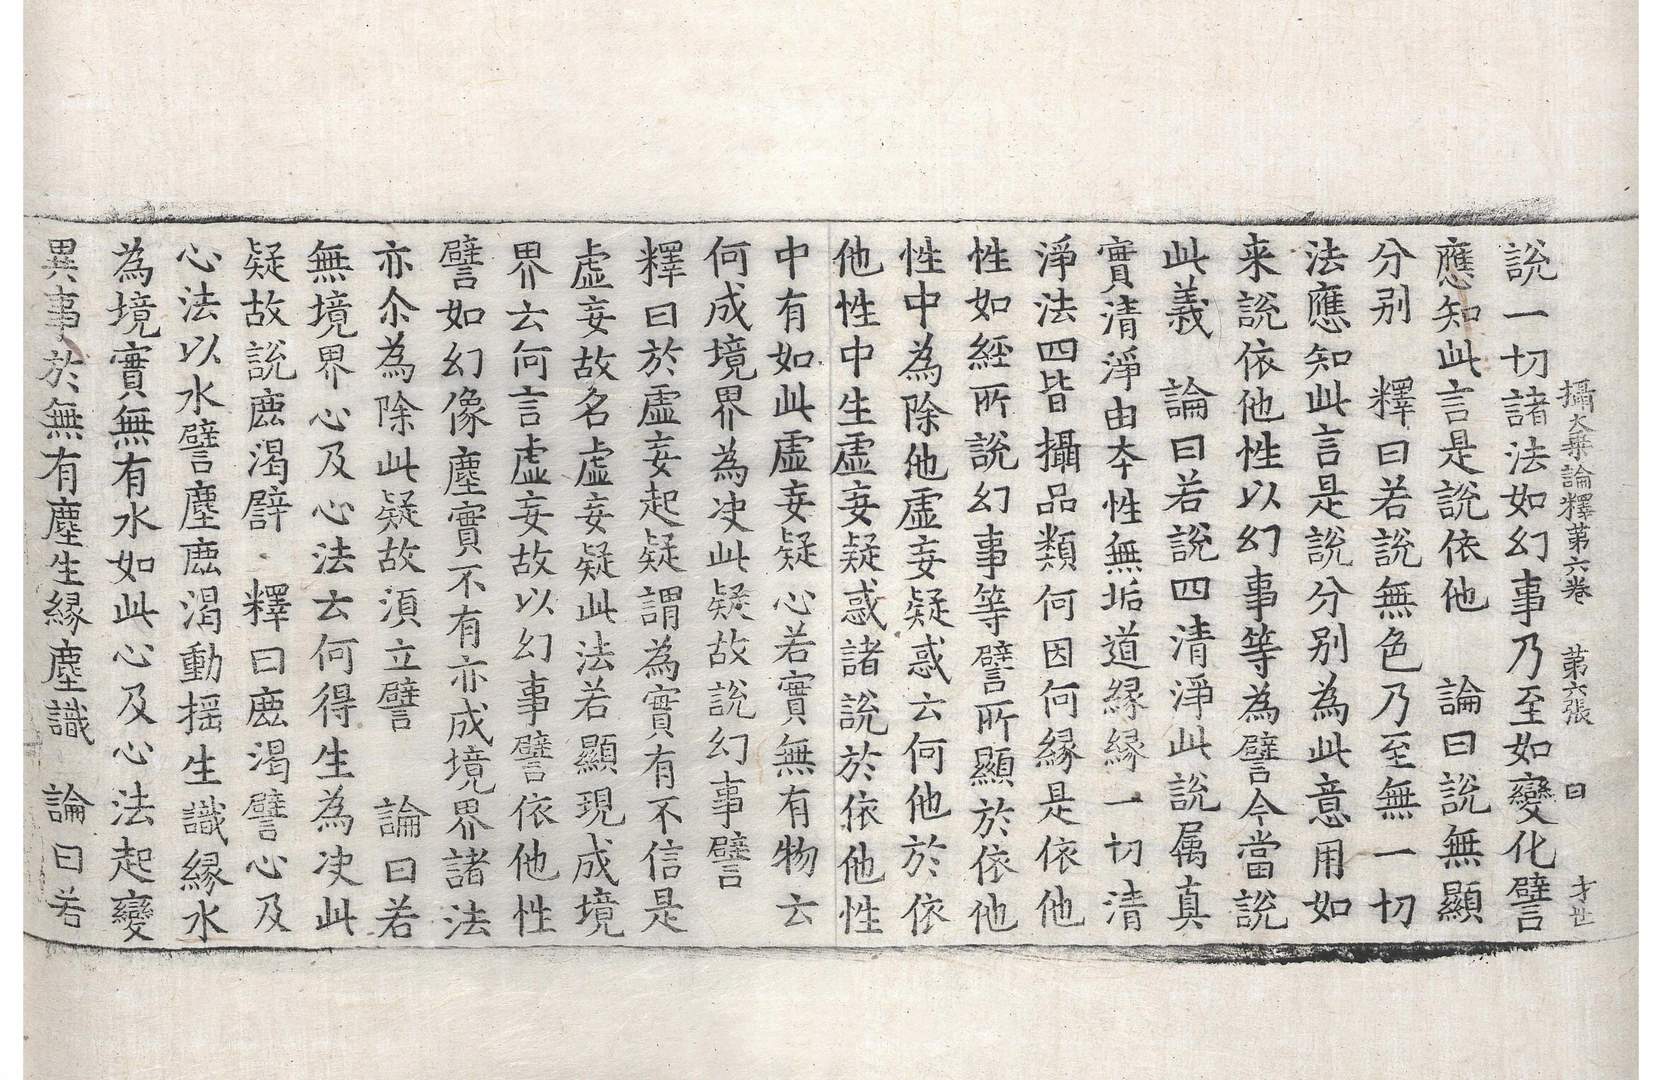 攝大乗論釋第六卷 第六張 曰 才世
說一切諸法如幻事乃至如變化譬
應知此言是說依他 論曰說無顯
分别 釋曰若說無色乃至無一切
法應知此言是說分别為此意用如
来說依他性以幻事等為譬今當說
此義 論曰若說四清淨此說属真
實清淨由夲性無垢道縁縁一切清
淨法四皆攝品類何因何縁是依他
性如經所說幻事等譬所顯於依他
性中為除他虚妄疑惑云何他於依
他性中生虚妄疑惑諸說於依他性
中有如此虚妄疑心若實無有物云
何成境界為决此疑故說幻事譬
釋曰於虚妄起疑謂為實有不信是
虚妄故名虚妄疑此法若顯現成境
界云何言虚妄故以幻事譬依他性
譬如幻像塵實不有亦成境界諸法
亦尒為除此疑故湏立譬 論曰若
無境界心及心法云何得生為决此
疑故說鹿渴譬 釋曰鹿渴譬心及
心法以水譬塵鹿渴動揺生識縁水
為境實無有水如此心及心法起變
異事於無有塵生縁塵識 論曰若